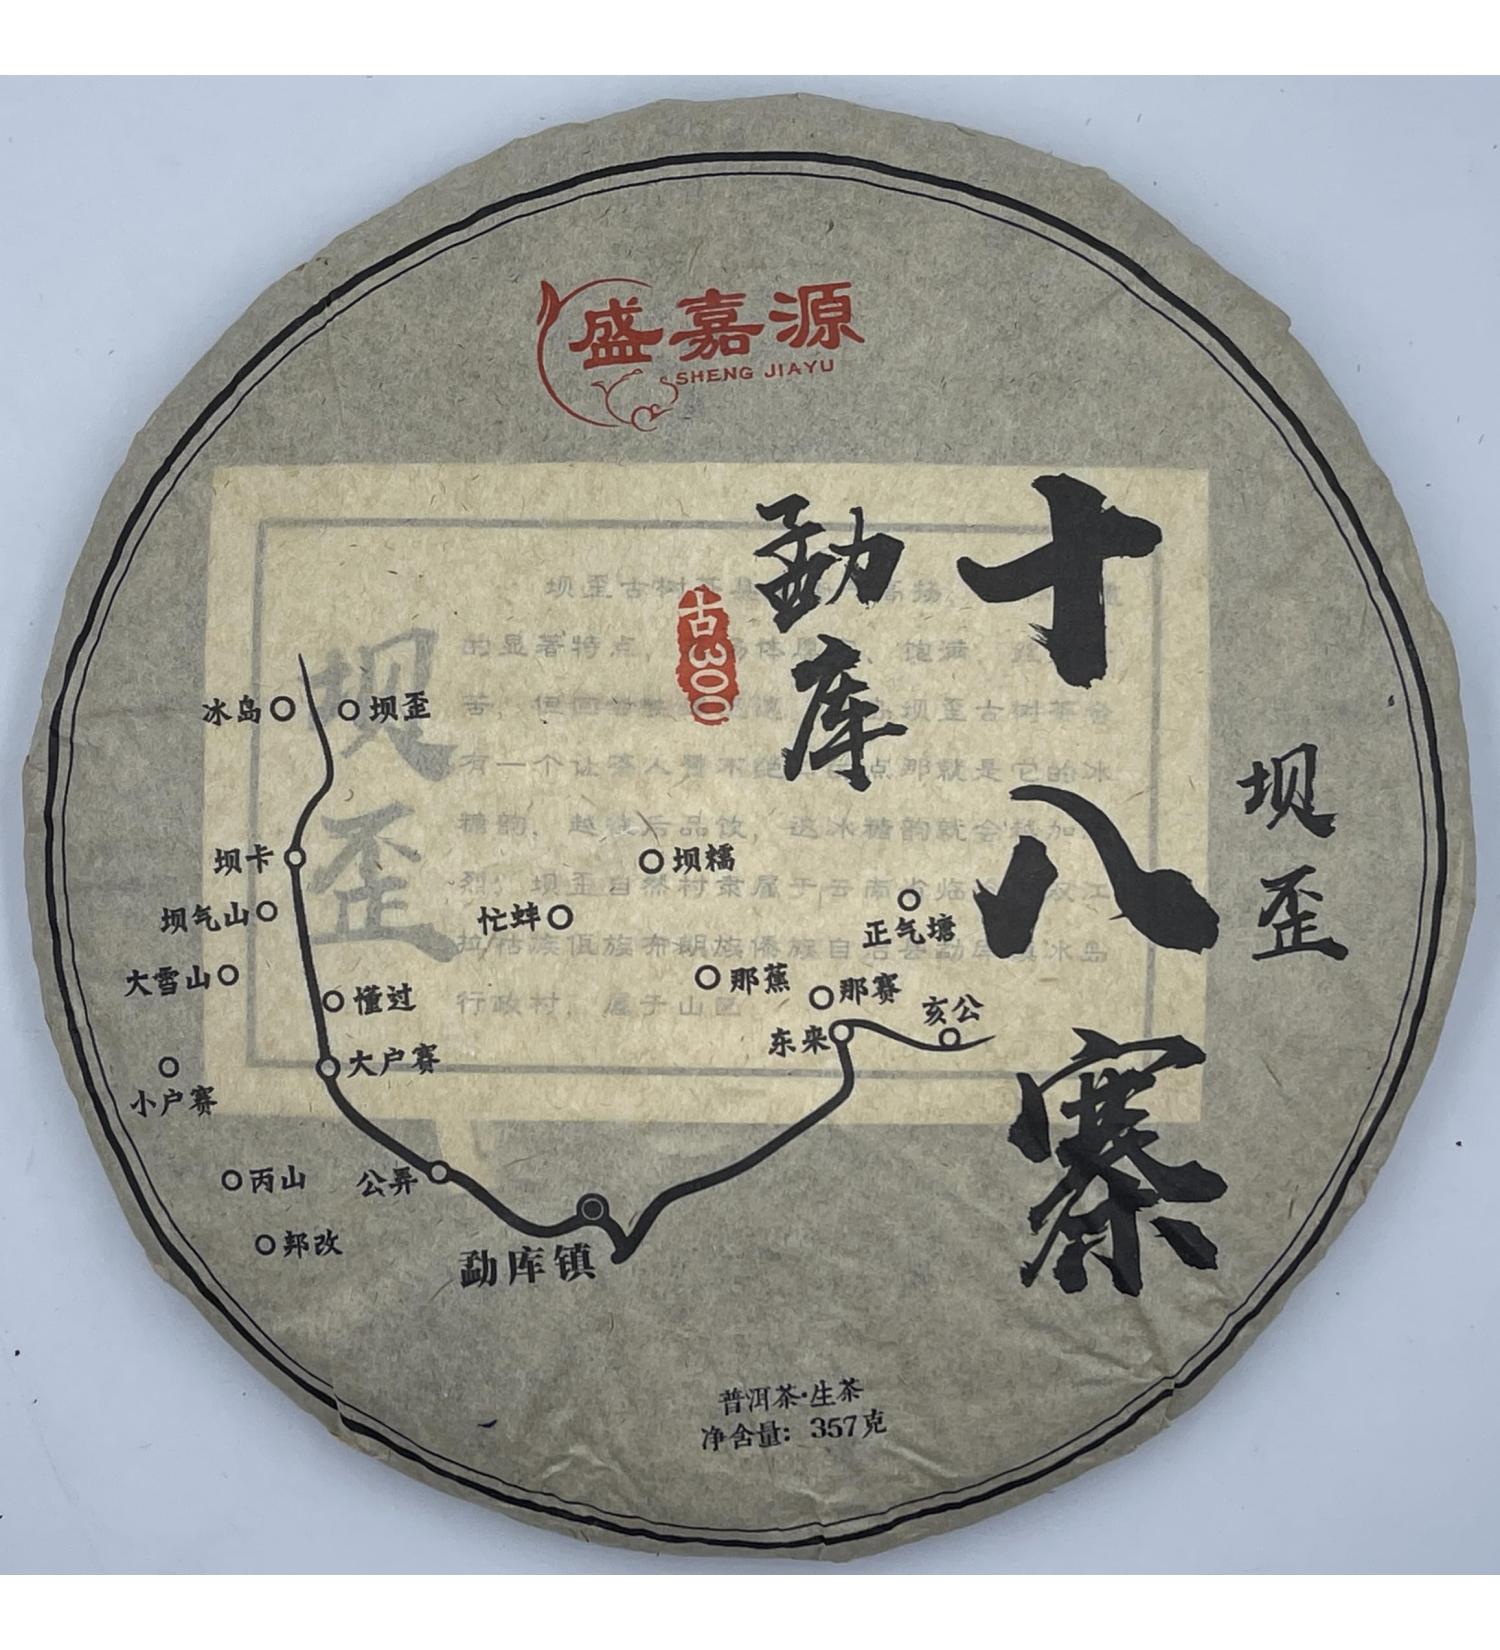 盛嘉源
SHENG JIAYU
十八寨
勐库
古300
坝歪
冰岛
坝歪
坝卡
坝糯
坝气山
忙蚌
正气塘
大雪山
懂过
那蕉
那赛
亥公
东来
大户赛
小户赛
丙山
公弄
邦改
勐库镇
普洱茶·生茶
净含量：357克
坝歪
坝歪古树茶
的显著特点，
有一个让茶人
点那就是它的冰
糖韵，越往后品饮，这冰糖韵就会
坝歪自然村隶属于云南省临
拉祜族佤族布朗族傣族自治县勐库镇冰岛
行政村，属于山区